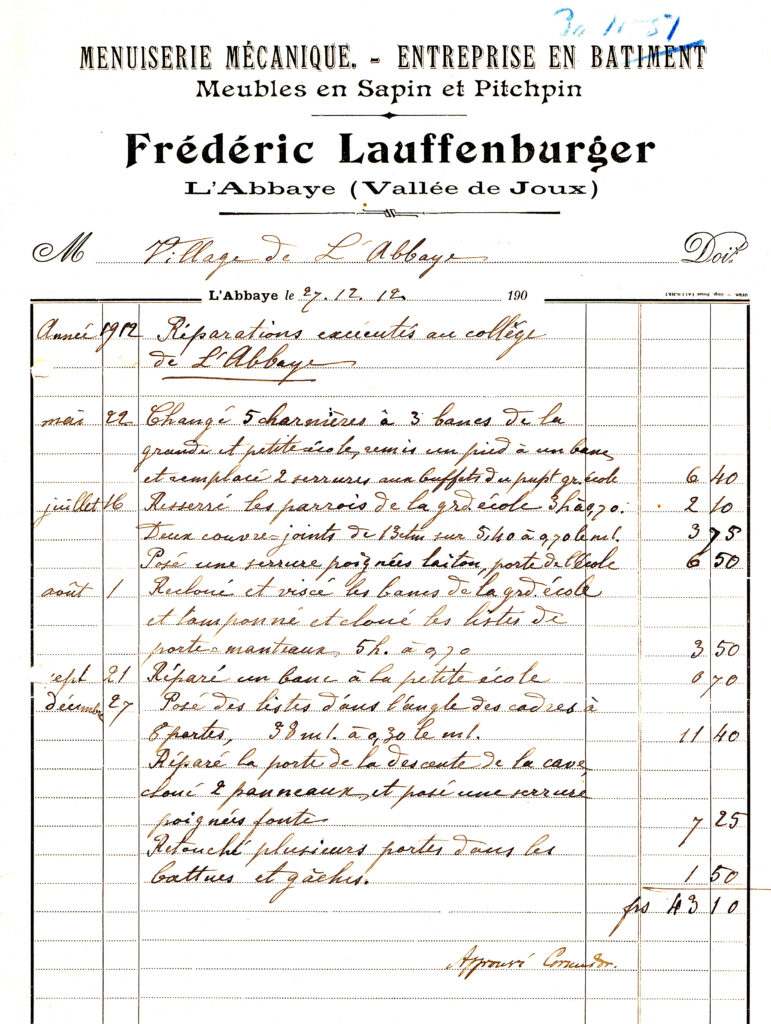 30 11 - 51
MENUISERIE MÉCANIQUE. - ENTREPRISE EN BATIMENT
Meubles en Sapin et Pitchpin
Frédéric Lauffenburger
L'Abbaye (Vallée de Joux)
M Village de L'Abbaye Doit
L'Abbaye le 27.12.12 190
Année 1912 Réparations exécutés au collége
de L'Abbaye
mai 22 Changé 5 charnières à 3 bancs de la
grande et petite école, remis un pied à un banc
et remplacé 2 serrures aux buffets du pupt gr. école 6 40
juillet 16 Resserré les parrois de la grd. école 3 h à 0,70. 2 10
Deux couvre-joints de 13 c/m sur 5,40 à 0,70 le ml. 3 75
Posé une serrure poignées laiton, porte de l'école 6 50
août 1 Recloué et vissé les bancs de la grd. école
et tamponné et cloué les listes de
porte-manteaux 5 h. à 0,70 3 50
sept 21 Réparé un banc à la petite école 0 70
décembre 27 Posé des listes dans l'angle des cadres à
6 portes, 38 ml. à 0,30 le ml. 11 40
Réparé la porte de la descente de la cave,
cloué 2 panneaux, et posé une serrure
poignées fonte 7 25
Retouché plusieurs portes dans les
battues et gâches. 1 50
frs 43 10
Approuvé